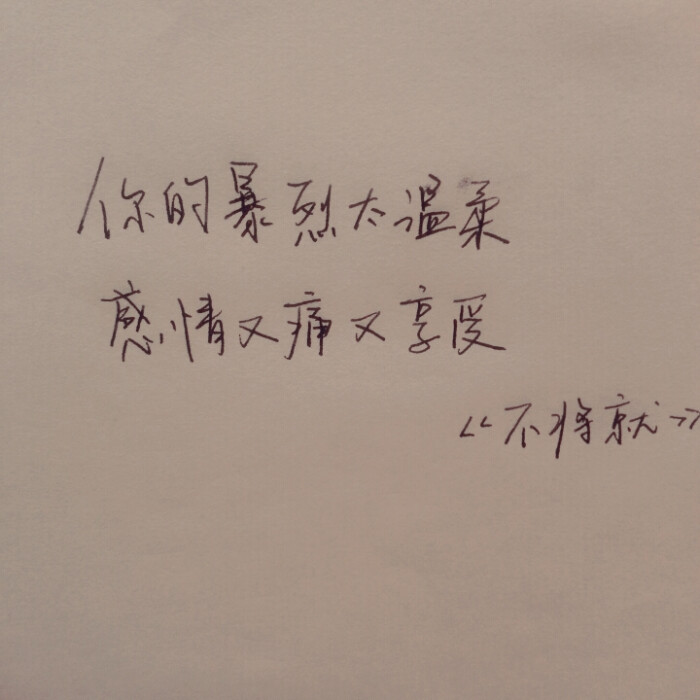 你的暴烈太温柔
感情又痛又享受
《不将就》